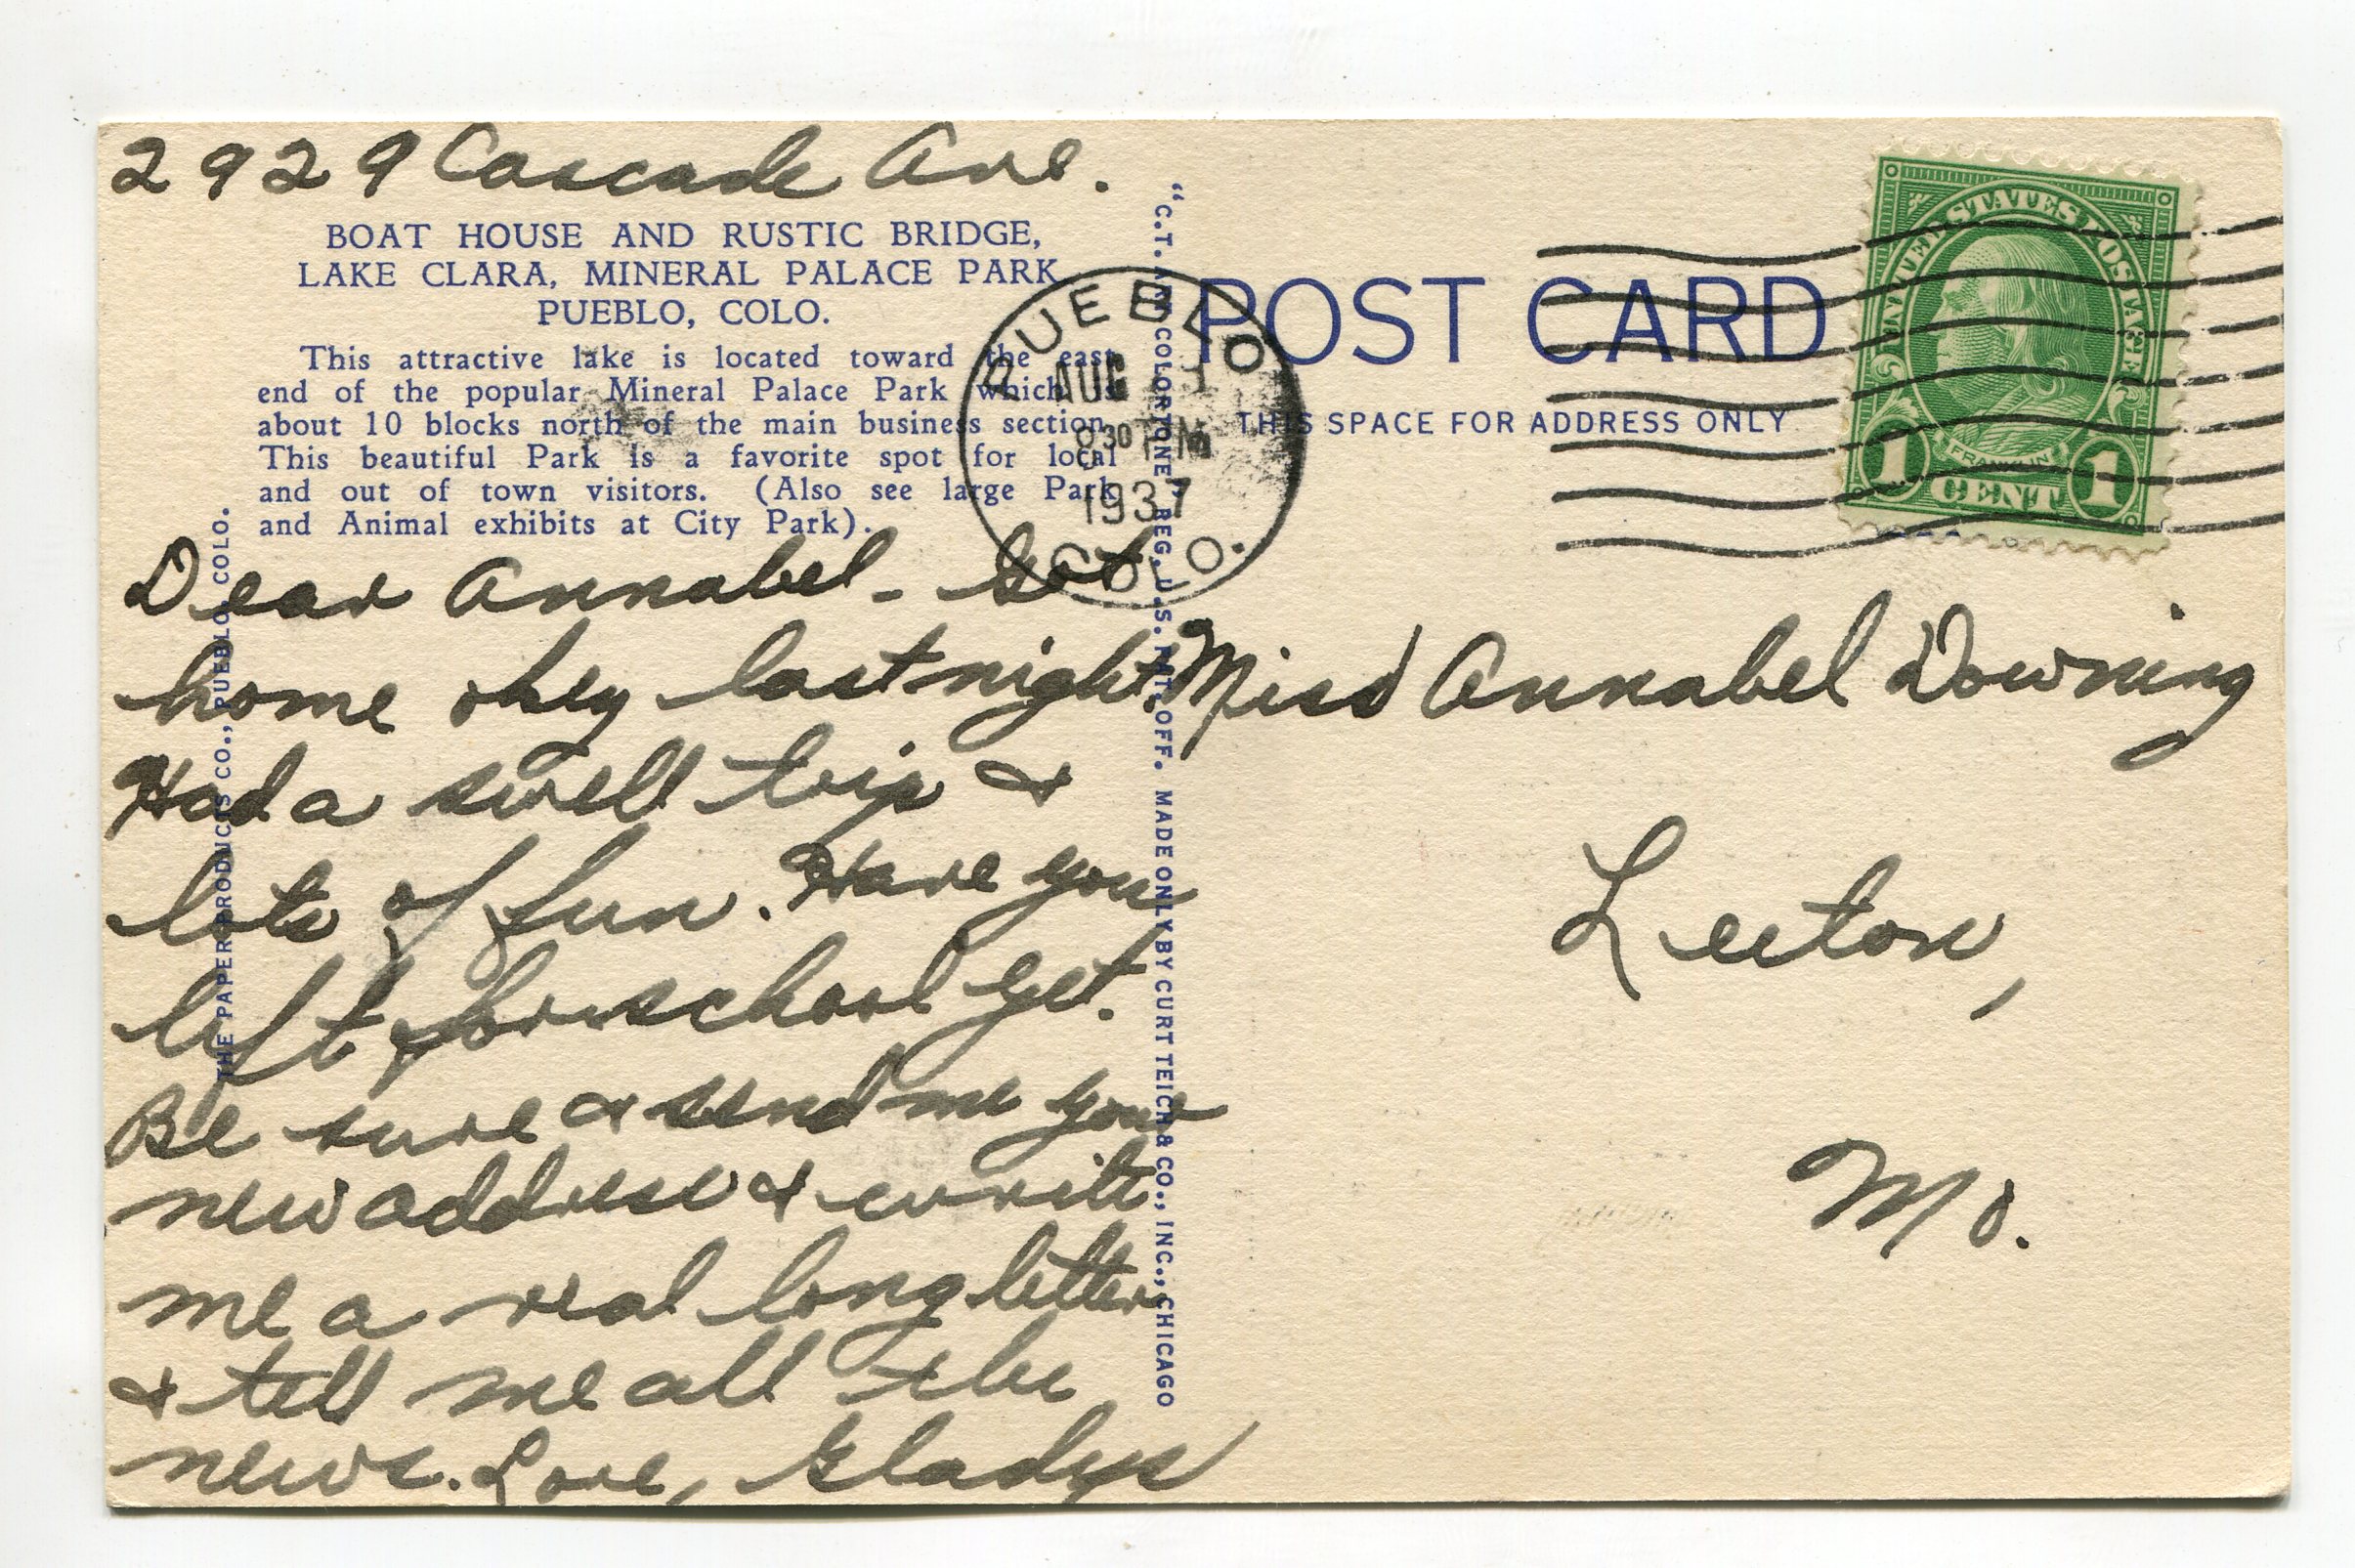 2929 Cascade Ave.
BOAT HOUSE AND RUSTIC BRIDGE,
LAKE CLARA, MINERAL PALACE PARK
PUEBLO, COLO.
This attractive lake is located toward the east
end of the popular Mineral Palace Park which is
about 10 blocks north of the main business section.
This beautiful Park is a favorite spot for local
and out of town visitors. (Also see large Park
and Animal exhibits at City Park).
Dear Annabel - Got
home okey last night.
Had a swell trip &
lots of fun. Have you
left for school yet.
Be sure & send me your
new address & write
me a real long letter
& tell me all the
news. Love, Gladys
THE PAPER PRODUCTS CO., PUEBLO, COLO.
"C.T. ART COLORTONE" REG. U.S. PAT. OFF. MADE ONLY BY CURT TEICH & CO., INC., CHICAGO
PUEBLO
AUG
830 PM
1937
COLO.
POST CARD
THIS SPACE FOR ADDRESS ONLY
UNITED STATES POSTAGE
FRANKLIN
1 CENT 1
Miss Annabel Downing
Leeton,
Mo.